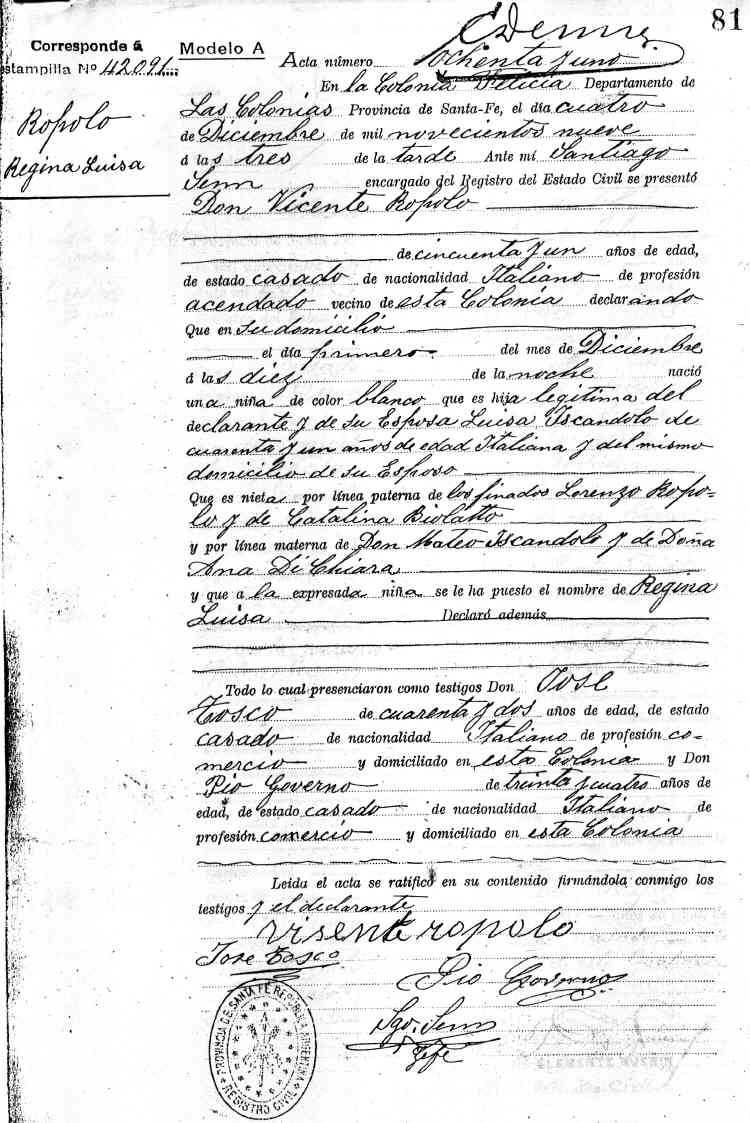 81
Corresponde á
estampilla Nº 42091
Modelo A
Acta número ochenta y uno
Ropolo
Regina Luisa
En la Colonia Felicia Departamento de
Las Colonias Provincia de Santa-Fe, el día cuatro
de Diciembre de mil novecientos nueve
á las tres de la tarde Ante mi Santiago
Senn encargado del Registro del Estado Civil se presentó
Don Vicente Ropolo
de cincuenta y un años de edad,
de estado casado de nacionalidad Italiano de profesión
acendado vecino de esta Colonia declarando
Que en su domicilio
el día primero del mes de Diciembre
á las diez de la noche nació
una niña de color blanco que es hija legitima del
declarante y de su Esposa Luisa Iscandolo de
cuarenta y un años de edad Italiana y del mismo
domicilio de su Esposo
Que es nieta por línea paterna de los finados Lorenzo Ropo-
lo y de Catalina Biolatto
y por línea materna de Don Mateo Iscandolo y de Doña
Ana Di Chiara
y que a la expresada niña se le ha puesto el nombre de Regina
Luisa Declaró además
Todo lo cual presenciaron como testigos Don José
Tosco de cuarenta y dos años de edad, de estado
casado de nacionalidad Italiano de profesión co-
mercio y domiciliado en esta Colonia y Don
Pio Governo de trinta y cuatro años de
edad, de estado casado de nacionalidad Italiano de
profesión comercio y domiciliado en esta Colonia
Leida el acta se ratificó en su contenido firmándola conmigo los
testigos y el declarante
visente ropolo
Jose Tosco
Pio Governo
Sgo. Senn
Jefe
PROVINCIA DE SANTA FÉ REPUBLICA ARGENTINA
REGISTRO CIVIL